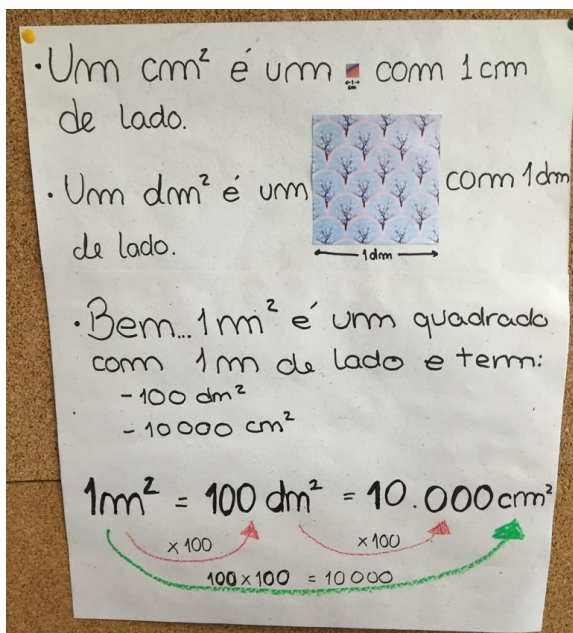 ·Um cm² é um com 1cm
←1→
cm
de lado.
·Um dm² é um com 1dm
de lado.
1dm
·Bem...1m² é um quadrado
com 1m de lado e tem:
-100 dm²
-10000 cm²
1m² = 100 dm² = 10.000cm²
×100 ×100
100×100 = 10000